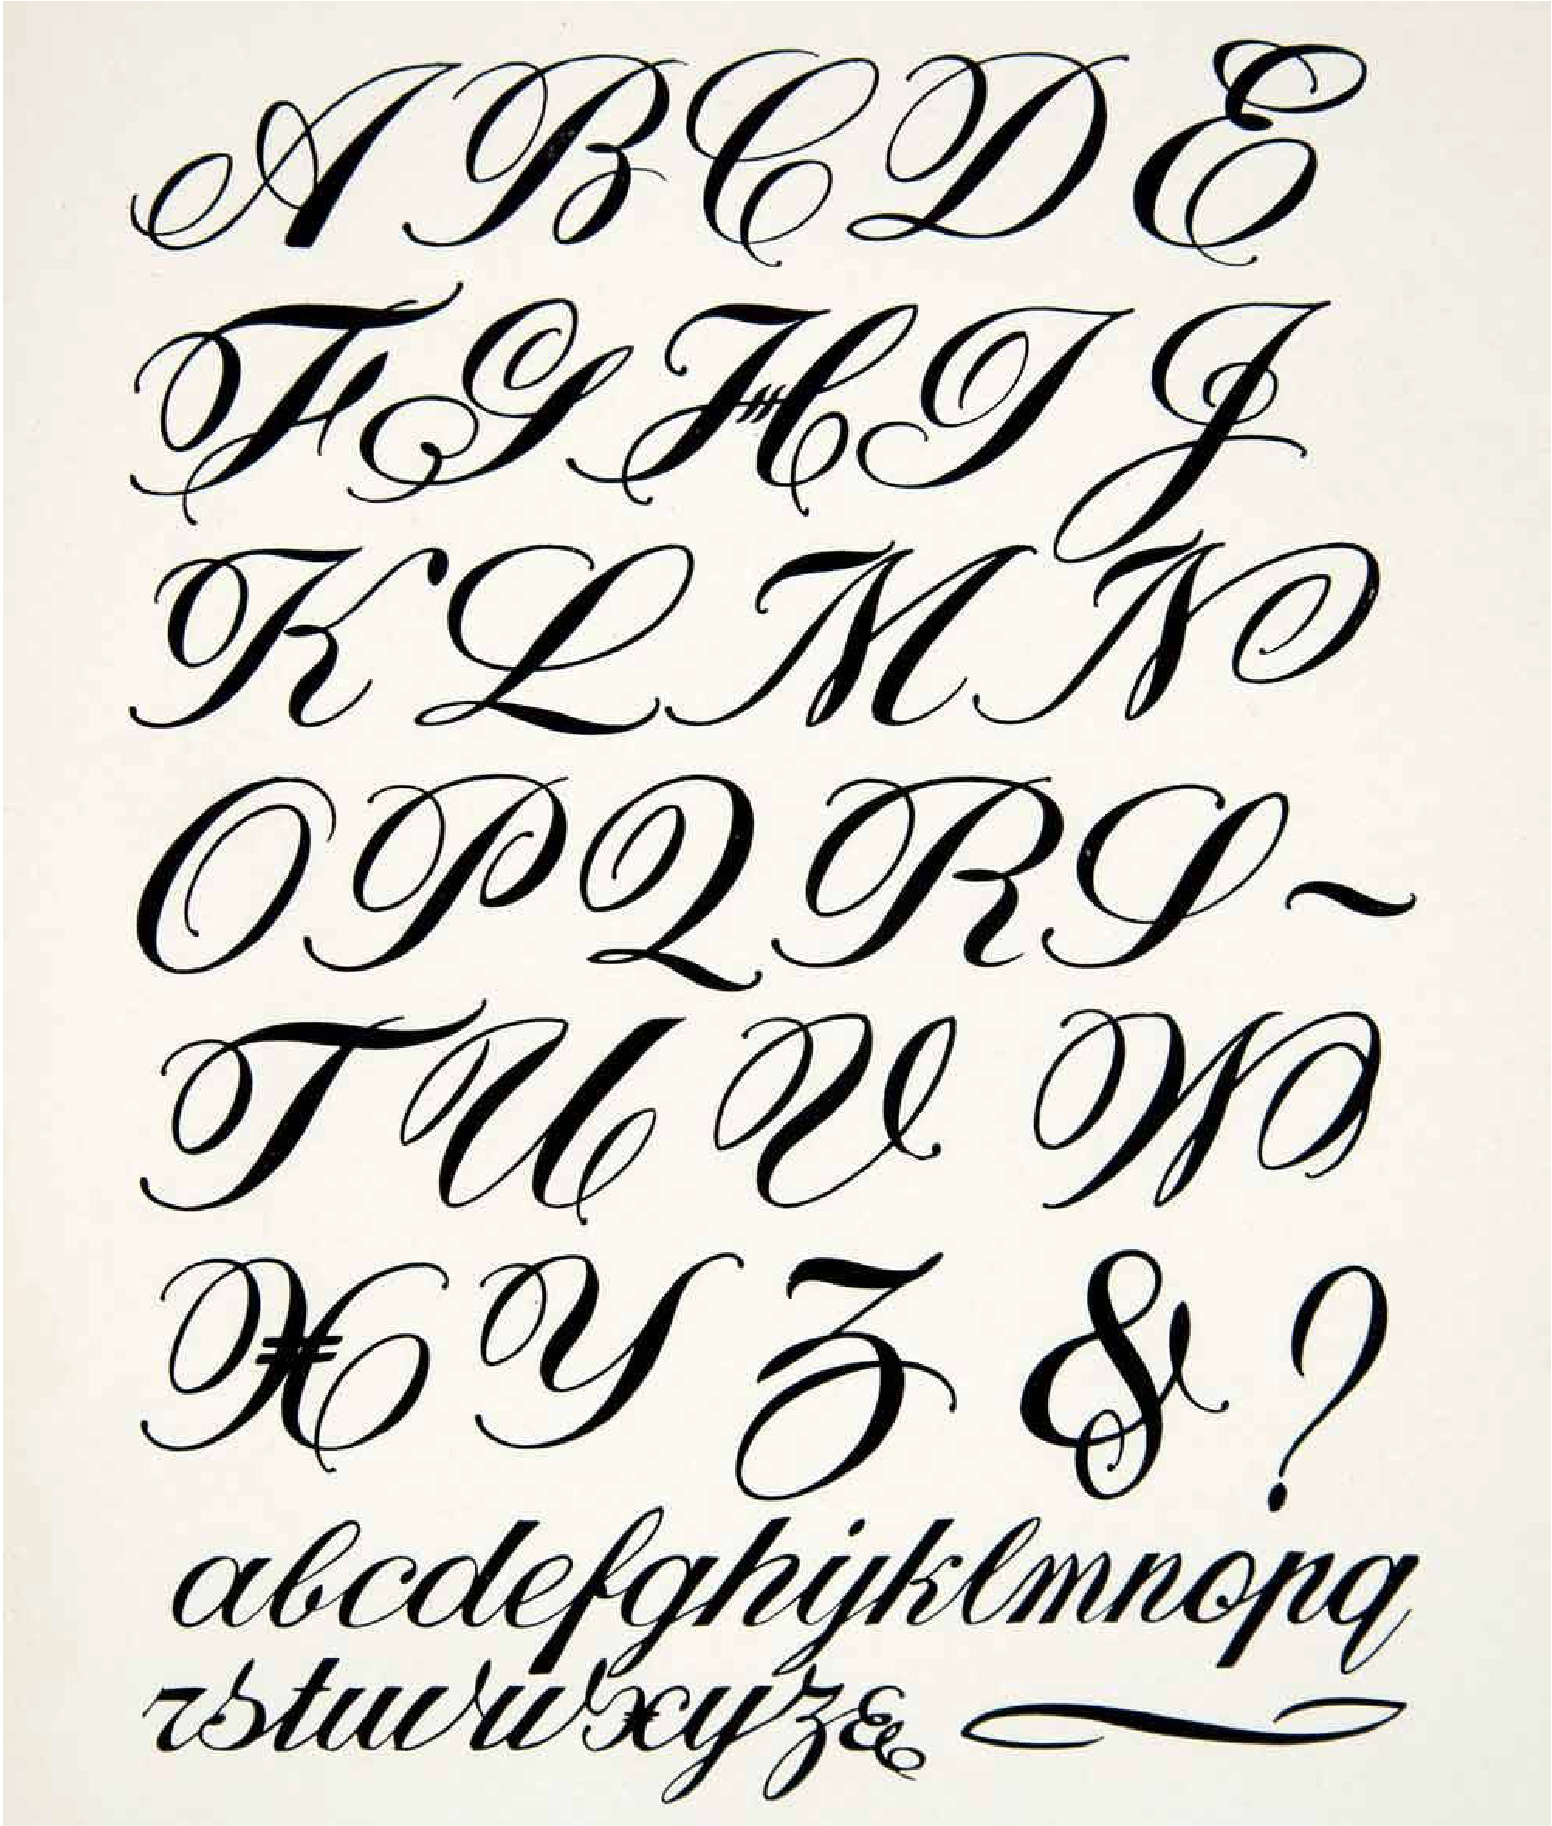 A B C D E
F G H I J
K L M N
O P Q R S ~
T U V W
X Y Z & ?
abcdefghijklmnopq
rstuvwxyz&